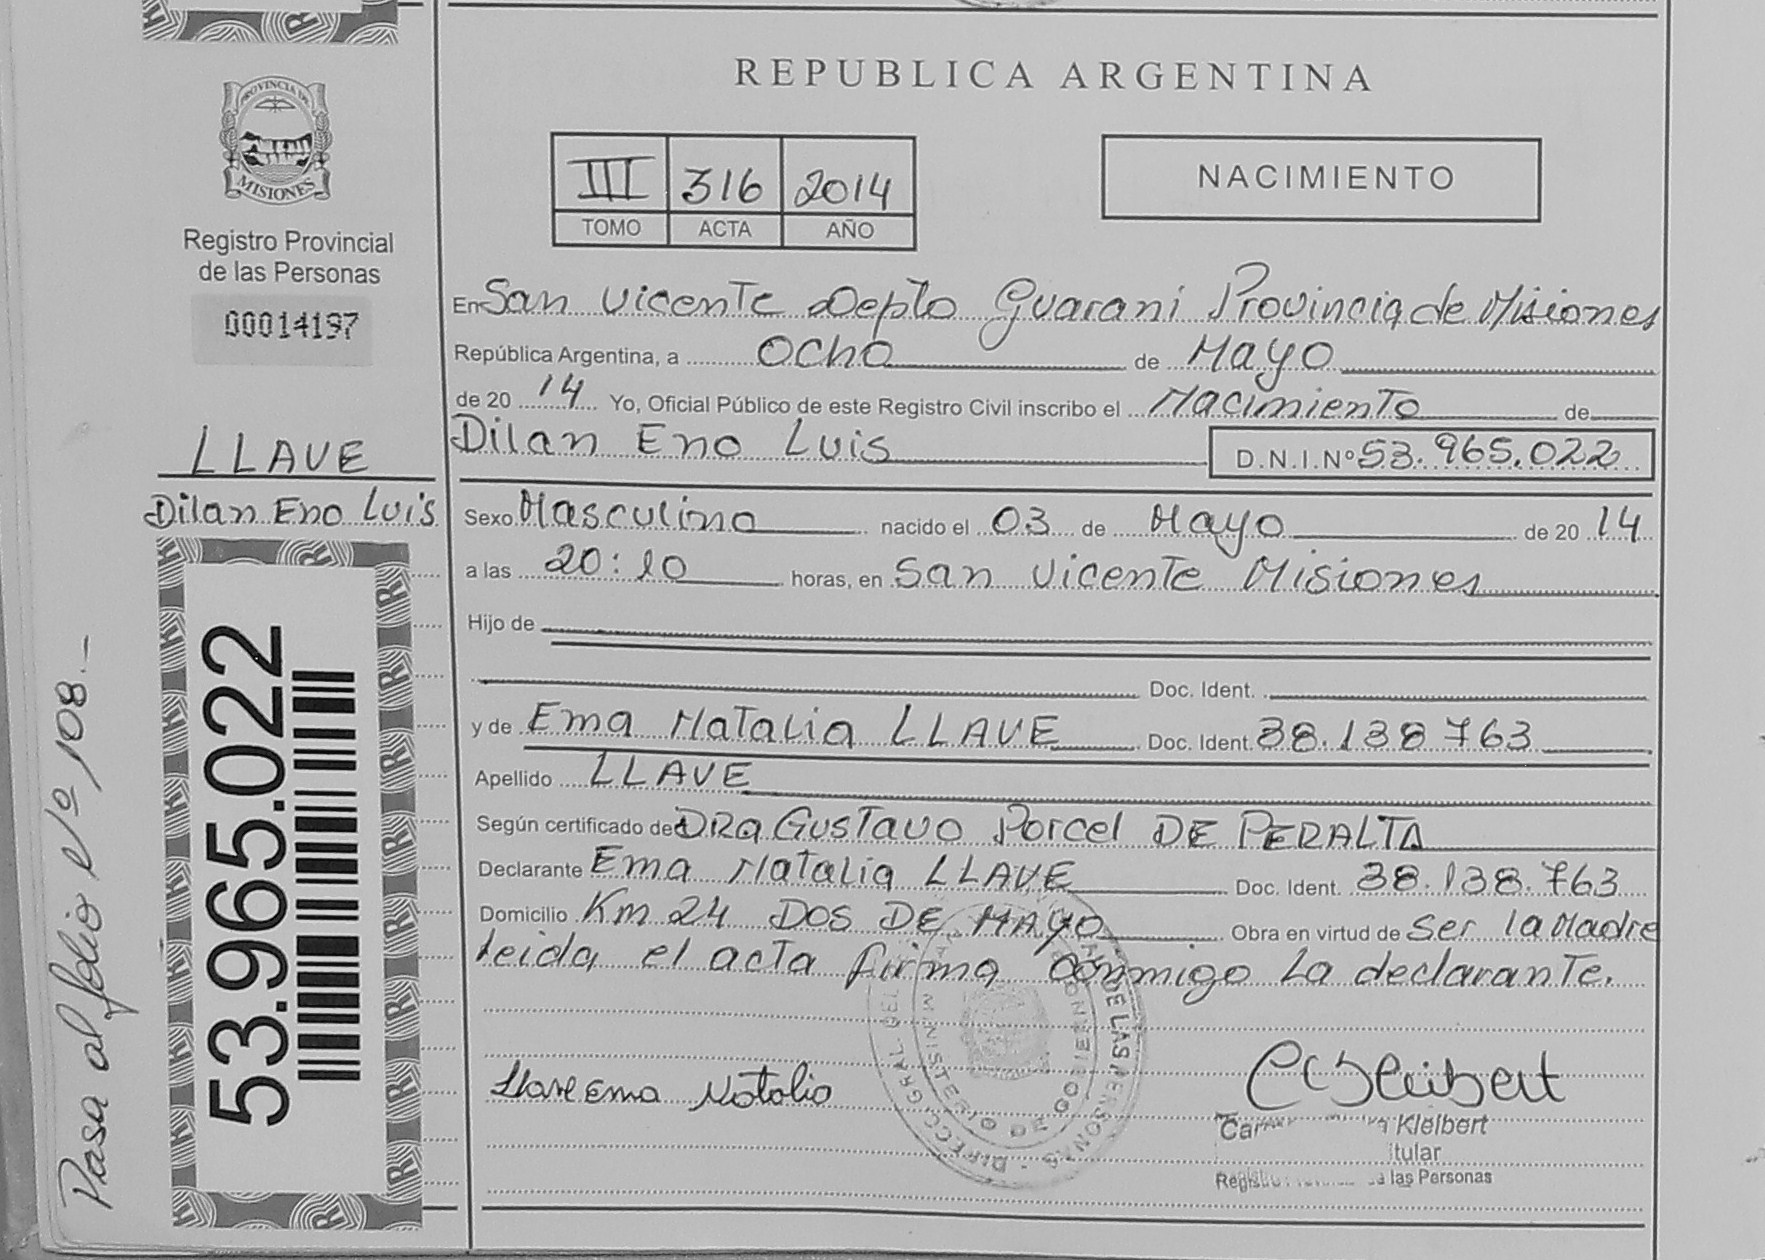 REPUBLICA ARGENTINA
PROVINCIA DE
MISIONES
Registro Provincial
de las Personas
00014197
LLAVE
Dilan Eno Luis
53.965.022
Pasa al folio Nº 108.-
III 316 2014
TOMO ACTA AÑO
NACIMIENTO
En San Vicente Depto Guarani Provincia de Misiones
República Argentina, a Ocho de Mayo
de 20 14 Yo, Oficial Público de este Registro Civil inscribo el Nacimiento de
Dilan Eno Luis D.N.I.Nº 53.965.022
Sexo Masculino nacido el 03 de Mayo de 20 14
a las 20:10 horas, en San Vicente Misiones
Hijo de
Doc. Ident.
y de Ema Natalia LLAVE Doc. Ident. 38.138.763
Apellido LLAVE
Según certificado de DRA Gustavo Porcel DE PERALTA
Declarante Ema Natalia LLAVE Doc. Ident. 38.138.763
Domicilio Km 24 DOS DE MAYO Obra en virtud de Ser la Madre
Leida el acta firma conmigo la declarante.
Llave Ema Natalia
Kleibert
las Personas
MINISTERIO DE GOBIERNO
DE LAS PERSONAS - DIRECC. GRAL. DEL